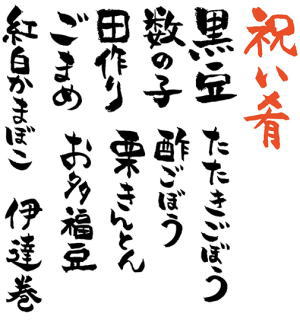 祝い肴
黒豆
たたきごぼう
数の子
酢ごぼう
田作り
栗きんとん
ごまめ
お多福豆
紅白かまぼこ
伊達巻